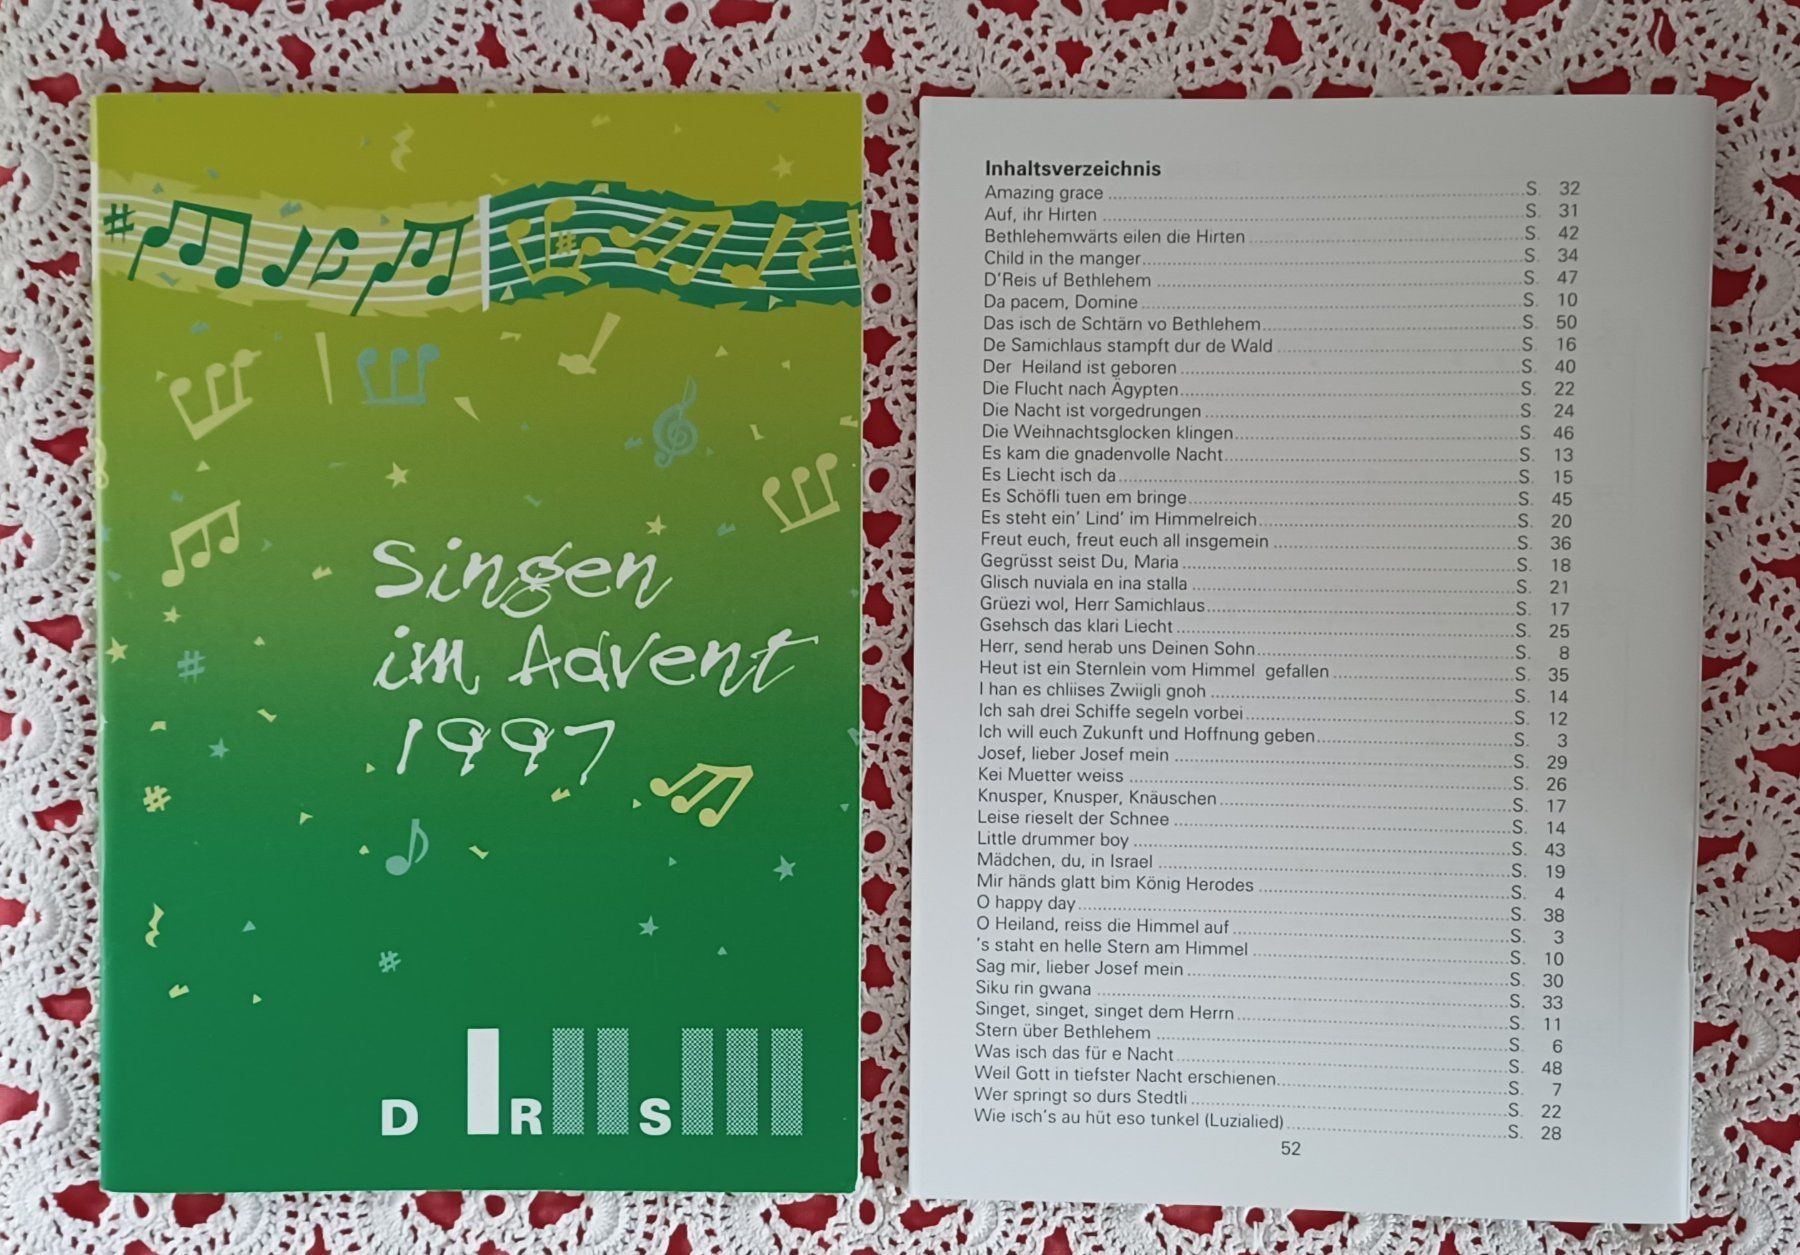 Singen
im Advent
1997
D I R S
Inhaltsverzeichnis
Amazing grace S. 32
Auf, ihr Hirten S. 31
Bethlehemwärts eilen die Hirten S. 42
Child in the manger S. 34
D'Reis uf Bethlehem S. 47
Da pacem, Domine S. 10
Das isch de Schtärn vo Bethlehem S. 50
De Samichlaus stampft dur de Wald S. 16
Der Heiland ist geboren S. 40
Die Flucht nach Ägypten S. 22
Die Nacht ist vorgedrungen S 24
Die Weihnachtsglocken klingen S. 46
Es kam die gnadenvolle Nacht S. 13
Es Liecht isch da S. 15
Es Schöfli tuen em bringe S. 45
Es steht ein' Lind' im Himmelreich S. 20
Freut euch, freut euch all insgemein S. 36
Gegrüsst seist Du, Maria S. 18
Glisch nuviala en ina stalla S. 21
Grüezi wol, Herr Samichlaus S. 17
Gsehsch das klari Liecht S. 25
Herr, send herab uns Deinen Sohn S. 8
Heut ist ein Sternlein vom Himmel gefallen S. 35
I han es chliises Zwiigli gnoh S. 14
Ich sah drei Schiffe segeln vorbei S. 12
Ich will euch Zukunft und Hoffnung geben S. 3
Josef, lieber Josef mein S. 29
Kei Muetter weiss S. 26
Knusper, Knusper, Knäuschen S. 17
Leise rieselt der Schnee S. 14
Little drummer boy S. 43
Mädchen, du, in Israel S. 19
Mir händs glatt bim König Herodes S. 4
O happy day S. 38
O Heiland, reiss die Himmel auf S. 3
's staht en helle Stern am Himmel S. 10
Sag mir, lieber Josef mein S. 30
Siku rin gwana S. 33
Singet, singet, singet dem Herrn S. 11
Stern über Bethlehem S. 6
Was isch das für e Nacht S. 48
Weil Gott in tiefster Nacht erschienen S. 7
Wer springt so durs Stedtli S. 22
Wie isch's au hüt eso tunkel (Luzialied) S. 28
52